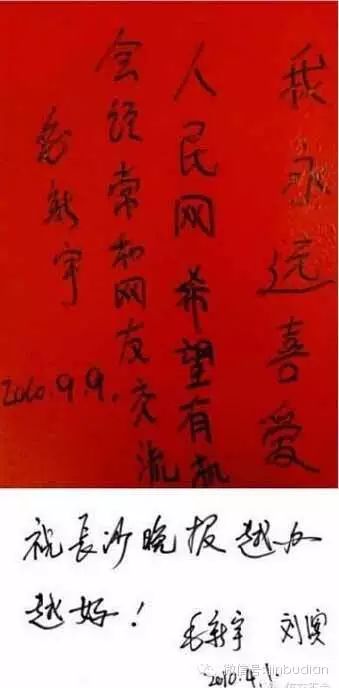 我永远喜爱
人民网希望有机
会经常和网友交流
毛新宇
2010.9.9.
祝長沙晚报越办
越好！
毛新宇 刘滨
2010.4.1.
微信号: jinbudian